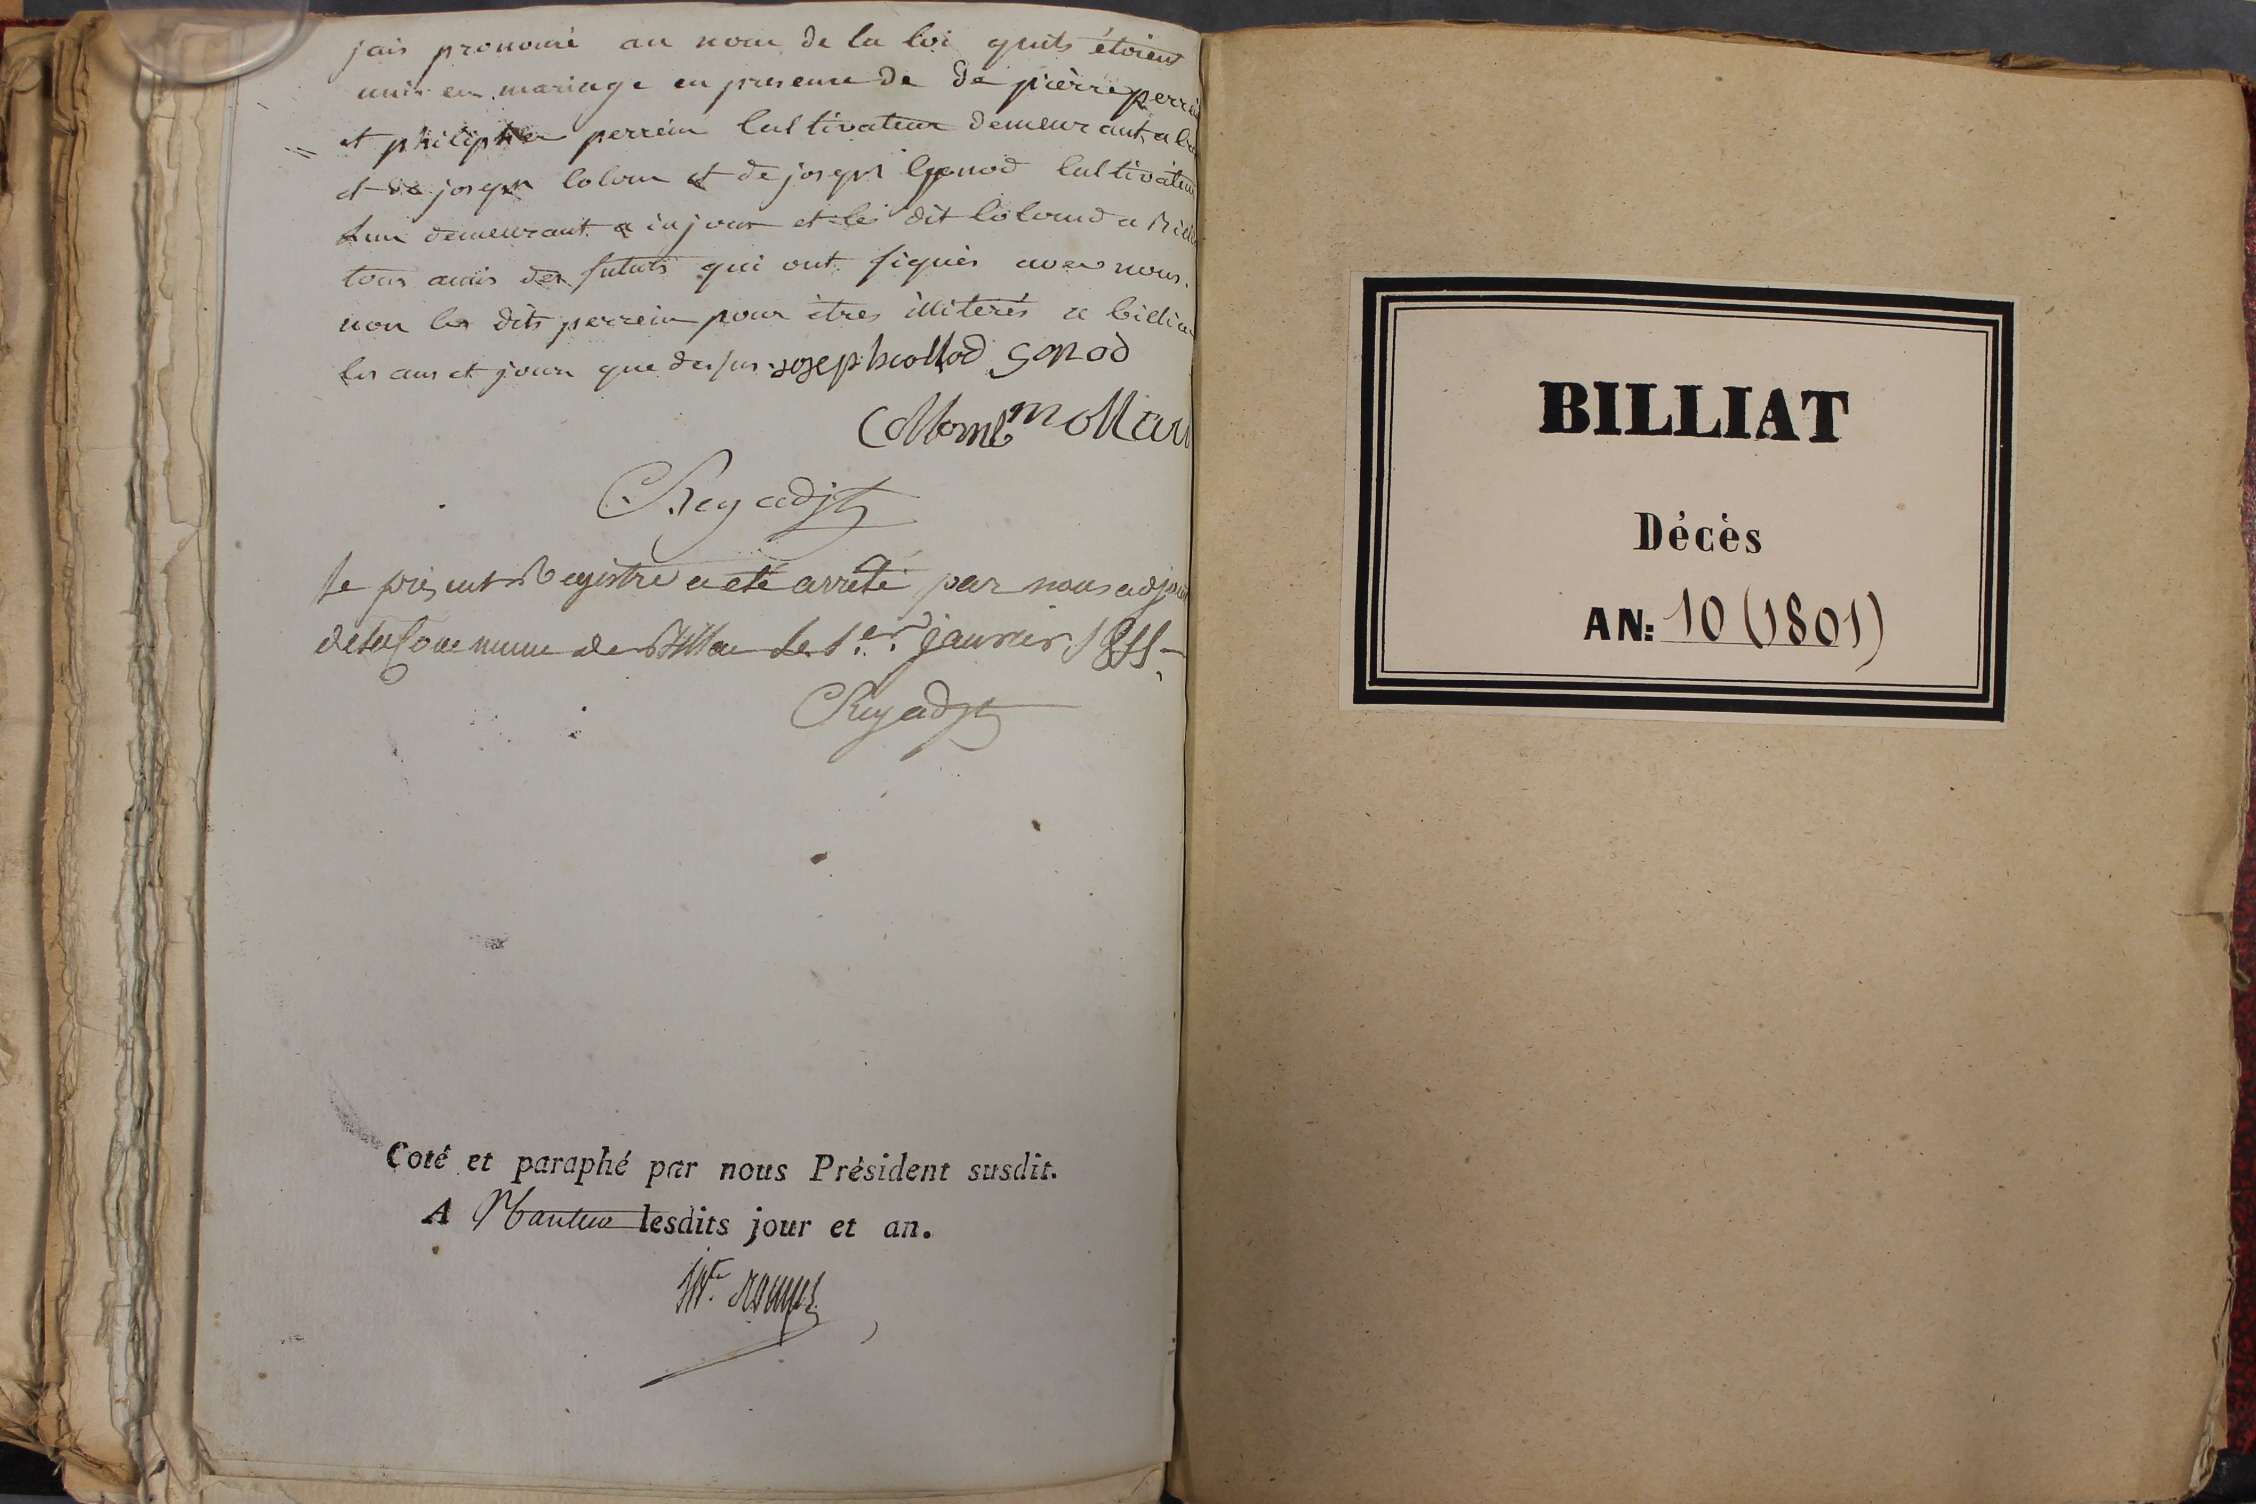 jais prononcé au nom de la loi quils étoient
unis en mariage en presence de de pierre perrein
et philiper perrein Cultivateur demeurant a
et de joseph Colom et de joseph gonod Cultivateur
lun demeurant a injour et le dit Colomd a
tous amis des futurs qui ont signés avec nous.
non les dits perrein pour êtres illiterés a billia
les ans et jour que dessus. joseph gonod
Collomb mollar
Rey adjt
le présent Registre a été arreté par nous adjoint
de la Commune de Billia le 1.er janvier 1811
Rey adjt
Coté et paraphé par nous Président susdit.
A Nantua lesdits jour et an.
BILLIAT
Décès
AN: 10 (1801)